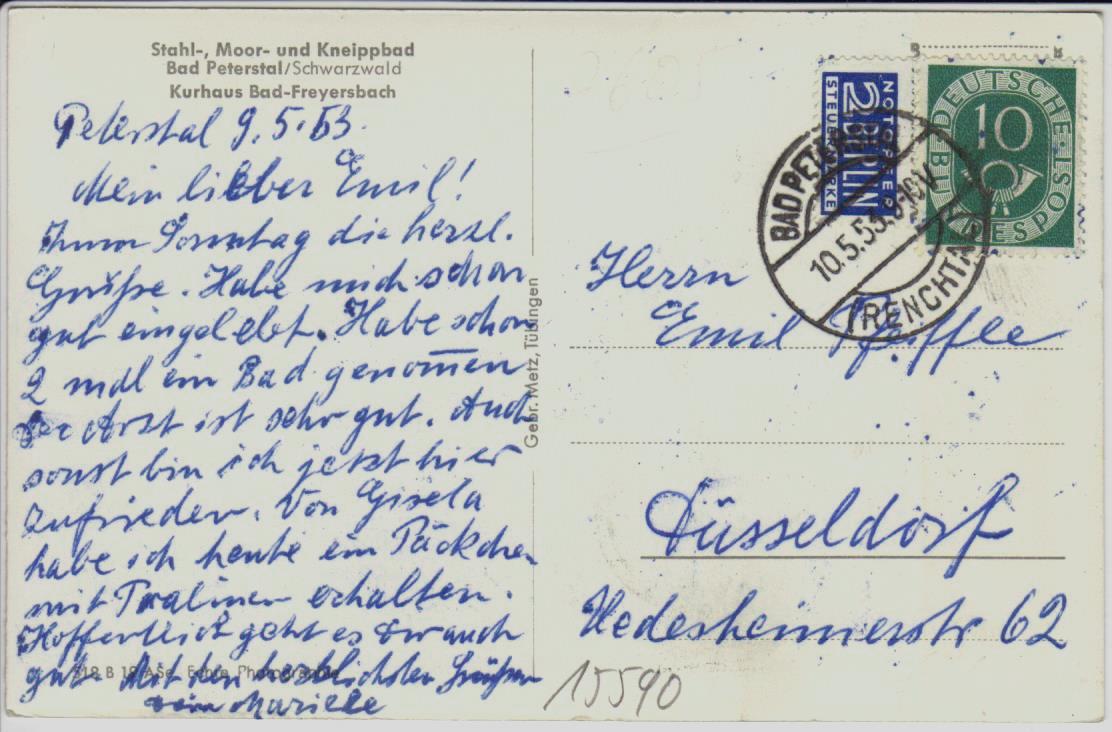 Stahl-, Moor- und Kneippbad
Bad Peterstal/Schwarzwald
Kurhaus Bad-Freyersbach
Peterstal 9.5.53.
Mein lieber Emil!
Zum Sonntag die herzl.
Grüße. Habe mich schon
gut eingelebt. Habe schon
2 mal ein Bad genom̅en
Der Arzt ist sehr gut. Auch
sonst bin ich jetzt hier
zufrieden. Von Gisela
habe ich heute ein Päckchen
mit Pralinen erhalten.
Hoffentlich geht es Dir auch
gut. Mit den herzlichsten Grüßen
518 B 18 ASe. Echte Photographie
Gebr. Metz, Tübingen
NOTOPFER
2 BERLIN
STEUERMARKE
DEUTSCHE BUNDESPOST
10
BAD PETERSTAL
10.5.53.9-10V
(RENCHTAL)
Herrn
Emil Pfeiffle
Düsseldorf
Hedesheimerstr 62
15590